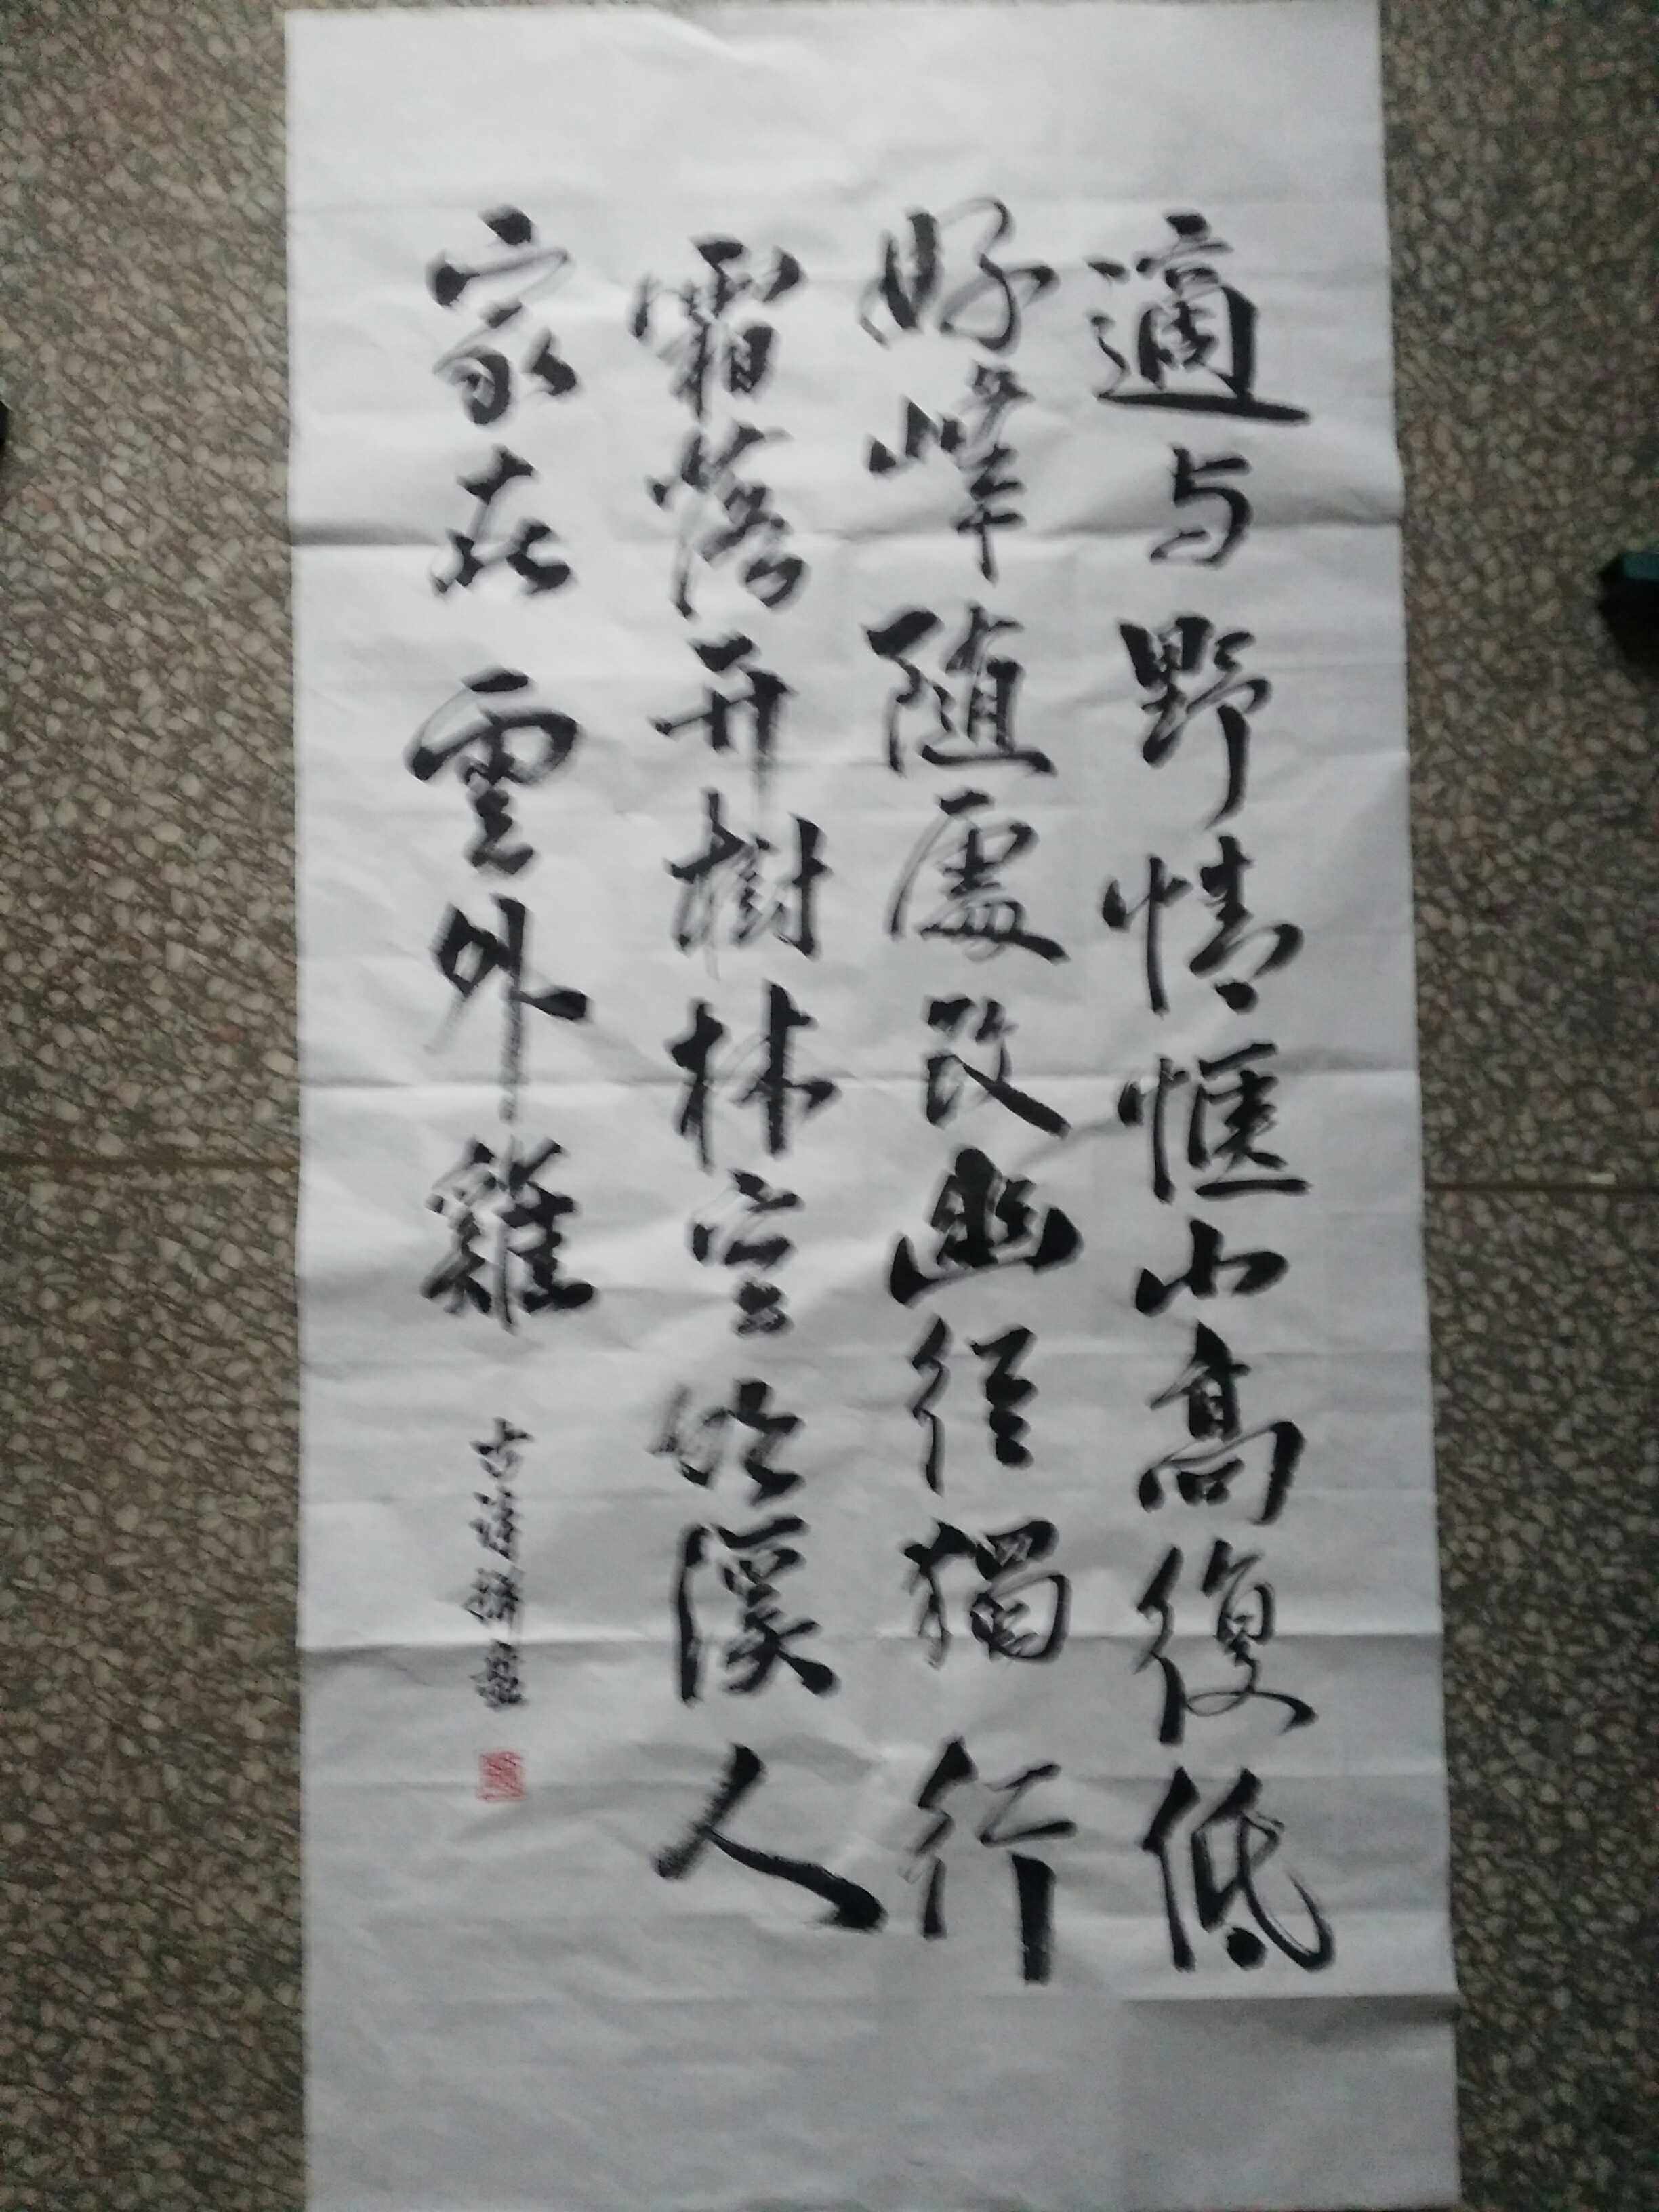 適与野情愜山高復低
好峰随處改幽徑獨行
霜落升樹林空溪人
家在雲外雞
古詩